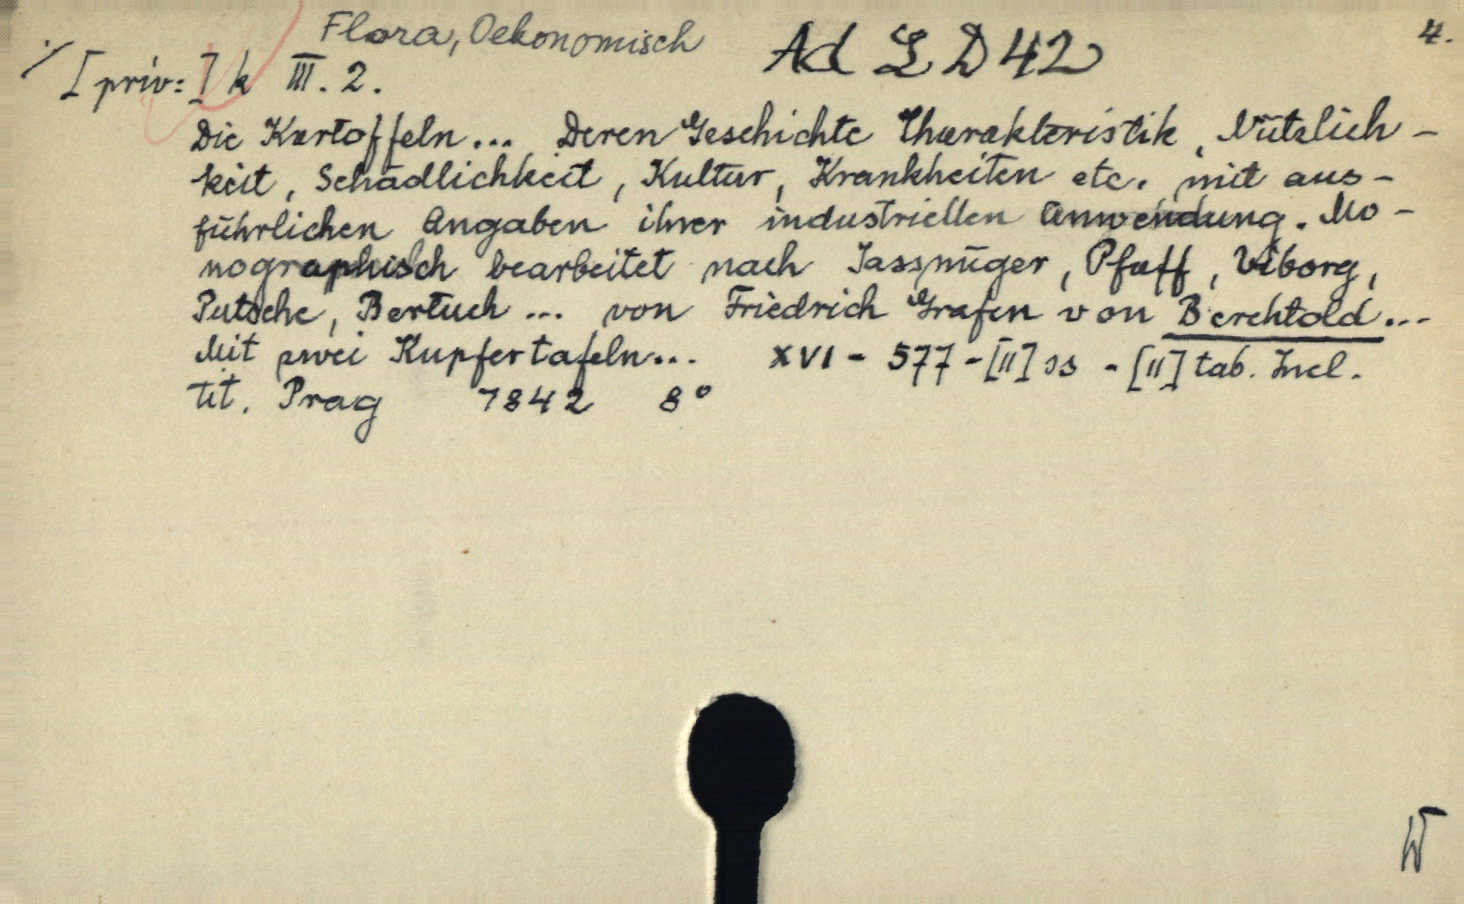 Flora, Oekonomisch Ad L D 42 4.
[priv:] k III. 2.
Die Kartoffeln... Deren Geschichte Charakteristik, Nützlich-
keit, Schädlichkeit, Kultur, Krankheiten etc. mit aus-
führlichen Angaben ihrer industriellen Anwendung. Mo-
nographisch bearbeitet nach Jassnüger, Pfaff, Viborg,
Putsche, Bertuch ... von Friedrich Grafen von Berchtold...
Mit zwei Kupfertafeln... XVI - 577 - [II] ss - [II] tab. Incl.
tit. Prag 1842 8°